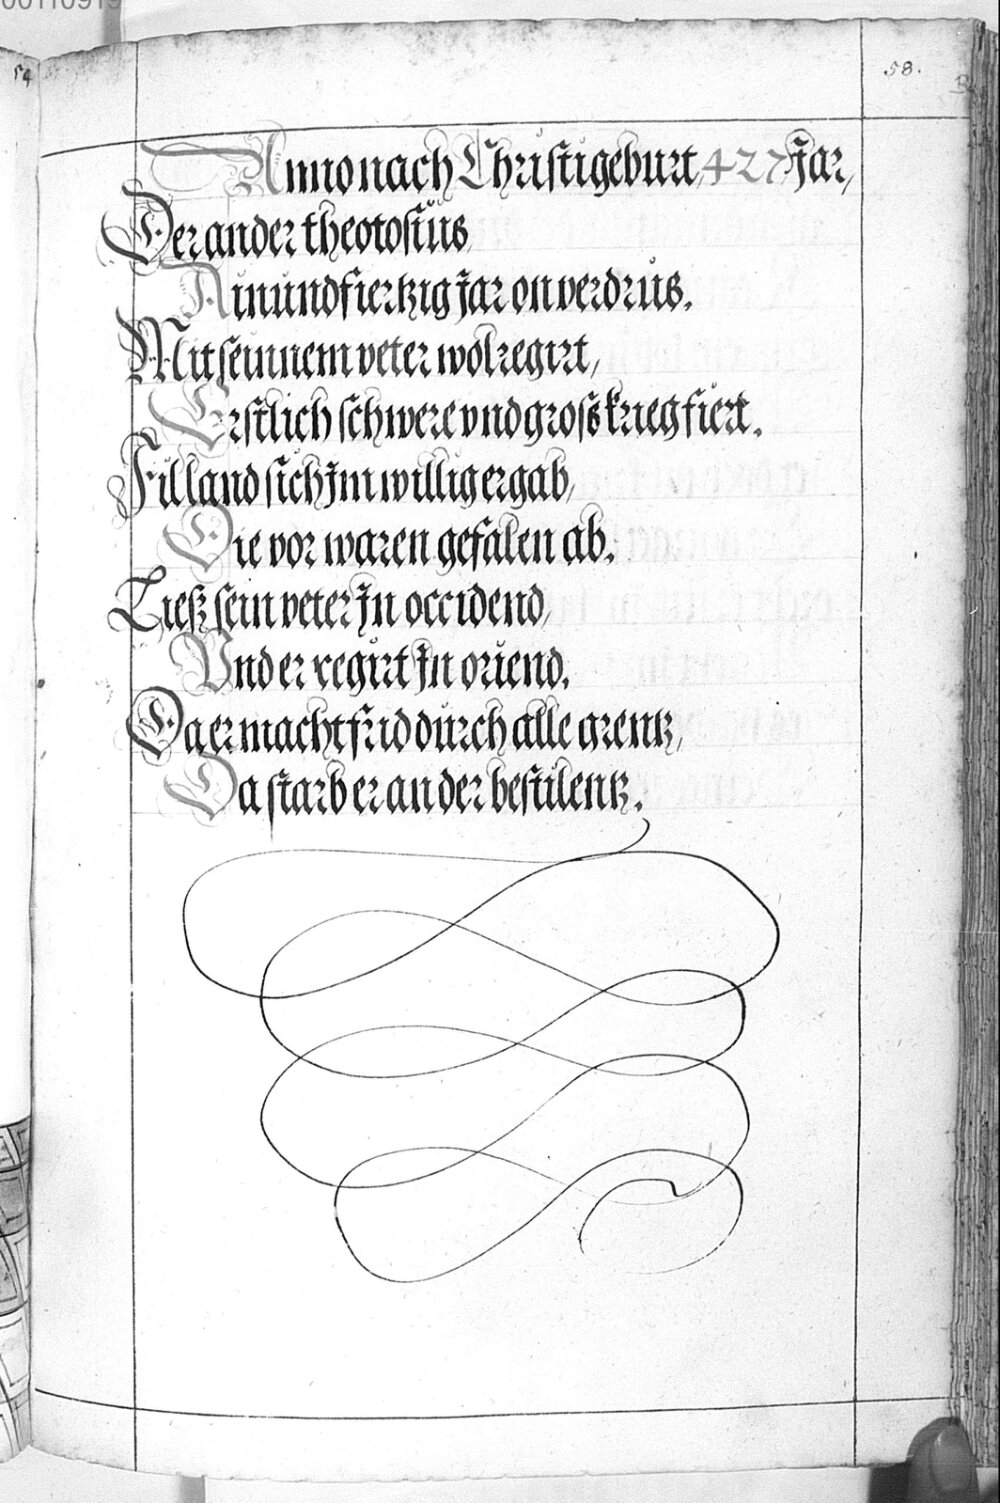 00110919
54
58.
Anno nach Christi geburt, 427 Jar,
Der ander theotosius,
Ainundfiertzig Jar on verdrus.
Mit seinnem veter wol regirt,
Erstlich schwere vnd gross krieg fiert.
Fil land sich Im willig ergab,
Die vor waren gefalen ab.
Liess sein veter In occidend,
Vnd er regirt In oriend.
Da er macht frid durch alle grentz,
Da starb er an der bestilentz.